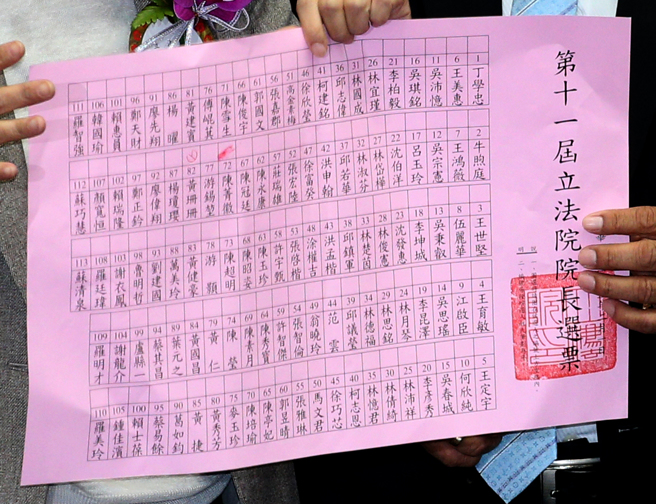 第十一屆立法院院長選票
1 丁學忠
2 牛煦庭
3 王世堅
4 王育敏
5 王定宇
6 王美惠
7 王鴻薇
8 伍麗華
9 江啟臣
10 何欣純
11 吳沛憶
12 吳宗憲
13 吳秉叡
14 吳思瑤
15 吳春城
16 吳琪銘
17 呂玉玲
18 李坤城
19 李昆澤
20 李彥秀
21 李柏毅
22 沈伯洋
23 沈發惠
24 林月琴
25 林沛祥
26 林宜瑾
27 林岱樺
28 林俊憲
29 林思銘
30 林倩綺
31 林國成
32 林淑芬
33 林楚茵
34 林德福
35 林憶君
36 邱志偉
37 邱若華
38 邱鎮軍
39 邱議瑩
40 柯志恩
41 柯建銘
42 洪申翰
43 洪孟楷
44 范雲
45 徐巧芯
46 徐欣瑩
47 徐富癸
48 涂權吉
49 翁曉玲
50 馬文君
51 高金素梅
52 張宏陸
53 張啓楷
54 張智倫
55 張雅琳
56 張嘉郡
57 莊瑞雄
58 許宇甄
59 許智傑
60 郭昱晴
61 郭國文
62 陳永康
63 陳玉珍
64 陳秀寳
65 陳亭妃
66 陳俊宇
67 陳冠廷
68 陳昭姿
69 陳素月
70 陳培瑜
71 陳雪生
72 陳菁徽
73 陳超明
74 陳瑩
75 麥玉珍
76 傅崐萁
77 游錫堃
78 游顥
79 黃仁
80 黃秀芳
81 黃建賓
黃珊珊
83 黃健豪
84 黃國昌
85 黃捷
86 楊曜
87 楊瓊瓔
88 萬美玲
89 葉元之
90 葛如鈞
91 廖先翔
92 廖偉翔
93 劉建國
94 蔡其昌
95 蔡易餘
96 鄭天財
97 鄭正鈐
98 魯明哲
99 盧縣一
100 賴士葆
101 賴惠員
102 賴瑞隆
103 謝衣鳯
104 謝龍介
105 鍾佳濱
106 韓國瑜
107 顏寬恒
108 羅廷瑋
109 羅明才
110 羅美玲
111 羅智強
112 蘇巧慧
113 蘇清泉